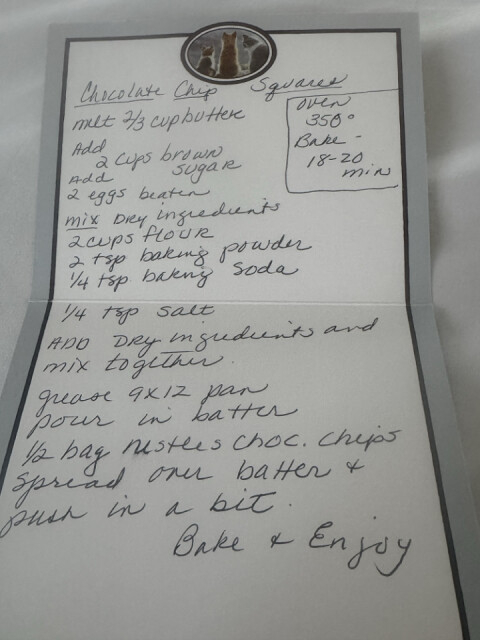 Chocolate Chip Squares
melt 2/3 cup butter
Add
2 cups brown sugar
Add
2 eggs beaten
oven
350°
Bake -
18-20
min
mix Dry ingredients
2 cups flour
2 tsp baking powder
1/4 tsp baking soda
1/4 tsp salt
ADD Dry ingredients and
mix together.
grease 9x12 pan
pour in batter
1/2 bag nestles choc. chips
spread over batter &
push in a bit.
Bake & Enjoy